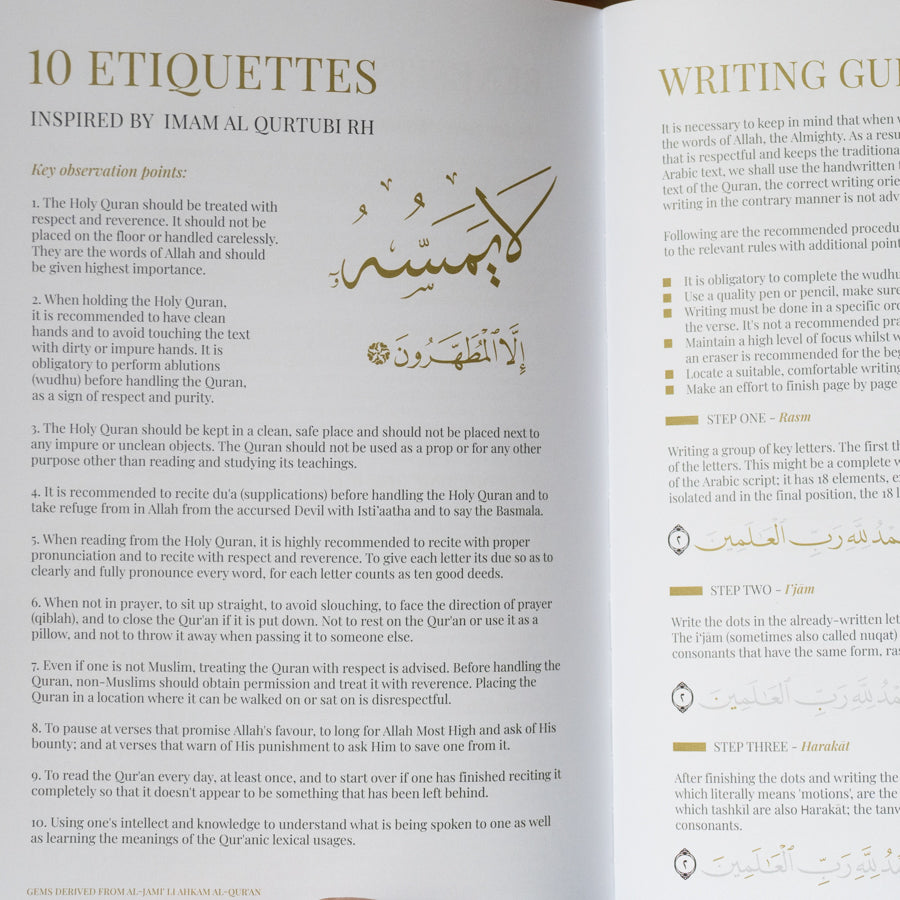 10 ETIQUETTES
INSPIRED BY IMAM AL QURTUBI RH
Key observation points:
1. The Holy Quran should be treated with
respect and reverence. It should not be
placed on the floor or handled carelessly.
They are the words of Allah and should
be given highest importance.
لَا يَمَسُّهُ
2. When holding the Holy Quran,
it is recommended to have clean
hands and to avoid touching the text
with dirty or impure hands. It is
obligatory to perform ablutions
(wudhu) before handling the Quran,
as a sign of respect and purity.
إِلَّا ٱلْمُطَهَّرُونَ
3. The Holy Quran should be kept in a clean, safe place and should not be placed next to
any impure or unclean objects. The Quran should not be used as a prop or for any other
purpose other than reading and studying its teachings.
4. It is recommended to recite du'a (supplications) before handling the Holy Quran and to
take refuge from in Allah from the accursed Devil with Isti'aatha and to say the Basmala.
5. When reading from the Holy Quran, it is highly recommended to recite with proper
pronunciation and to recite with respect and reverence. To give each letter its due so as to
clearly and fully pronounce every word, for each letter counts as ten good deeds.
6. When not in prayer, to sit up straight, to avoid slouching, to face the direction of prayer
(qiblah), and to close the Qur'an if it is put down. Not to rest on the Qur'an or use it as a
pillow, and not to throw it away when passing it to someone else.
7. Even if one is not Muslim, treating the Quran with respect is advised. Before handling the
Quran, non-Muslims should obtain permission and treat it with reverence. Placing the
Quran in a location where it can be walked on or sat on is disrespectful.
8. To pause at verses that promise Allah's favour, to long for Allah Most High and ask of His
bounty; and at verses that warn of His punishment to ask Him to save one from it.
9. To read the Qur'an every day, at least once, and to start over if one has finished reciting it
completely so that it doesn't appear to be something that has been left behind.
10. Using one's intellect and knowledge to understand what is being spoken to one as well
as learning the meanings of the Qur'anic lexical usages.
GEMS DERIVED FROM AL-JAMI' LI AHKAM AL-QUR'AN
WRITING GUI
It is necessary to keep in mind that when
the words of Allah, the Almighty. As a resu
that is respectful and keeps the traditiona
Arabic text, we shall use the handwritten
text of the Quran, the correct writing orie
writing in the contrary manner is not adv
Following are the recommended procedu
to the relevant rules with additional point
It is obligatory to complete the wudhu
Use a quality pen or pencil, make sure
Writing must be done in a specific ord
the verse. It's not a recommended pra
Maintain a high level of focus whilst w
an eraser is recommended for the beg
Locate a suitable, comfortable writing
Make an effort to finish page by page
STEP ONE - Rasm
Writing a group of key letters. The first th
of the letters. This might be a complete w
of the Arabic script; it has 18 elements, e
isolated and in the final position, the 18 l
مْدُ لِلَّهِ رَبِّ ٱلْعَـٰلَمِينَ ٢
STEP TWO - I'jām
Write the dots in the already-written let
The i'jām (sometimes also called nuqat)
consonants that have the same form, ras
مْدُ لِلَّهِ رَبِّ ٱلْعَـٰلَمِينَ ٢
STEP THREE - Harakāt
After finishing the dots and writing the
which literally means 'motions', are the
which tashkīl are also Harakāt; the tanw
consonants.
مْدُ لِلَّهِ رَبِّ ٱلْعَـٰلَمِينَ ٢